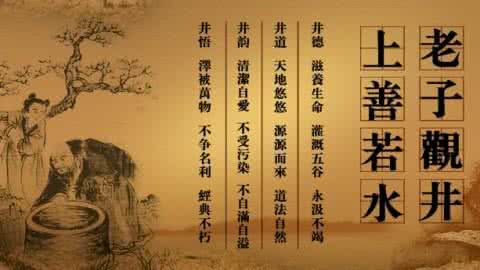 老子觀井
上善若水
井德 滋養生命 灌溉五谷 永汲不竭
井道 天地悠悠 源源而來 道法自然
井韵 清潔自愛 不受污染 不自滿自溢
井悟 澤被萬物 不争名利 經典不朽